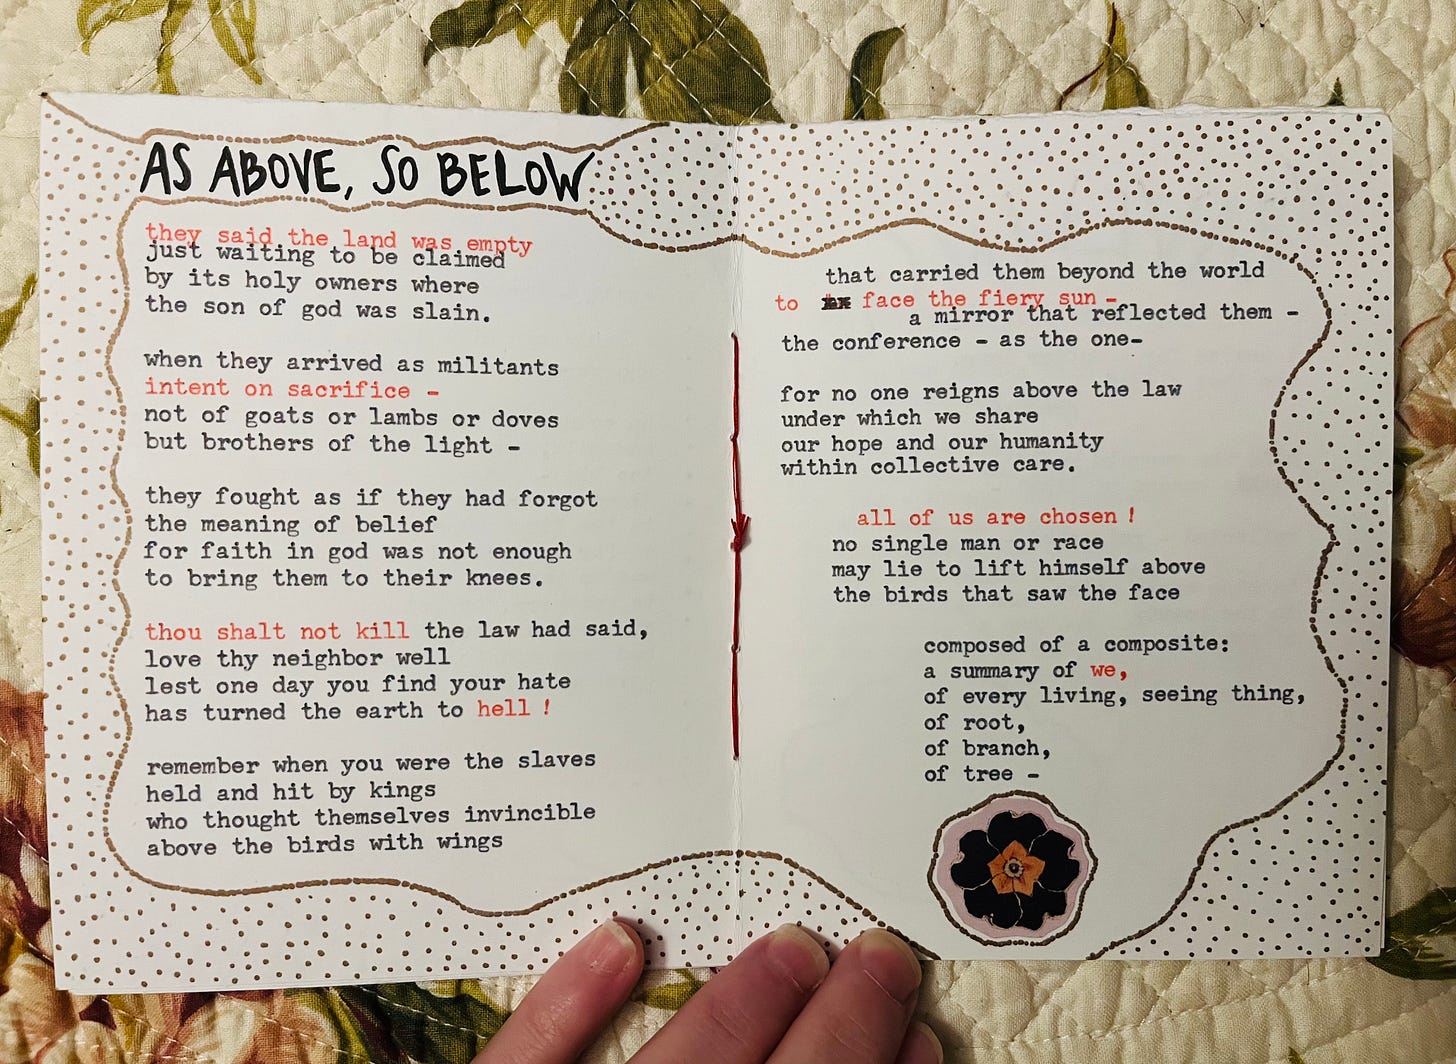 AS ABOVE, SO BELOW
they said the land was empty
just waiting to be claimed
by its holy owners where
the son of god was slain.
when they arrived as militants
intent on sacrifice -
not of goats or lambs or doves
but brothers of the light -
they fought as if they had forgot
the meaning of belief
for faith in god was not enough
to bring them to their knees.
thou shalt not kill the law had said,
love thy neighbor well
lest one day you find your hate
has turned the earth to hell !
remember when you were the slaves
held and hit by kings
who thought themselves invincible
above the birds with wings
that carried them beyond the world
to face the fiery sun -
a mirror that reflected them -
the conference - as the one-
for no one reigns above the law
under which we share
our hope and our humanity
within collective care.
all of us are chosen !
no single man or race
may lie to lift himself above
the birds that saw the face
composed of a composite:
a summary of we,
of every living, seeing thing,
of root,
of branch,
of tree -